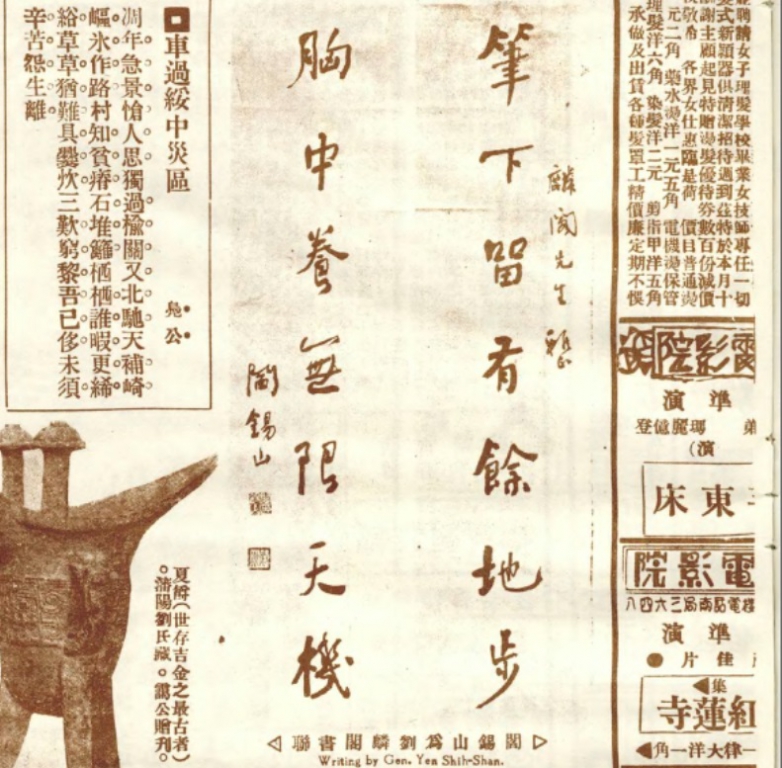 聘請女子理髮學校畢業女技師專任一切
髮式新穎器俱清潔招待週到茲特於本月十
謝主顧起見特贈燙髮優待券數百份減價
敬希 各界女仕惠臨是荷 價目普通燙
元二角 藥水燙洋一元五角 電機燙保管
理髮洋六角 染髮洋二元 剪指甲洋五角
承做及出賃各種髮罩工精價廉定期不悞
電影院
準演
瑪麗億登
(演
東床
電影院
準演
佳片
集
紅蓮寺
一律大洋一角
麟閣先生
筆下留有餘地步
胸中養無限天機
閻錫山
閻錫山爲劉麟閣書聯
Writing by Gen. Yen Shih-Shan.
車過綏中災區
公
凋年急景愴人思獨過楡關又北馳天補崎
嶇氷作路村知貧瘠石堆籬栖栖誰暇更絺
綌草草猶難具爨炊三歎窮黎吾已侈未須
辛苦怨生離
夏罇(世存吉金之最古者)
。瀋陽劉氏藏。公贈刊。